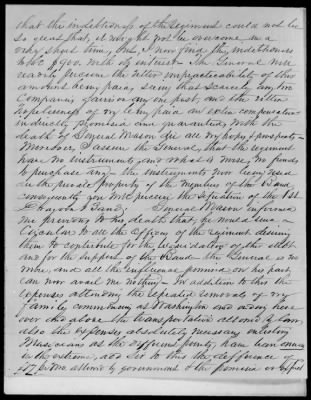 that the indebtedness of the regiment could not be
so great that, it might not be overcome in a
very short time, but I now find the indebtedness
to be $900. with the interest - The General will
readily perceive the utter impracticability of this
amount being paid, seeing that scarcely any two
Companies garrison any one post, and the utter
hopelessness of my being paid an extra compensation
individually promised and guarantied, with the
death of General Mason die all my hopes & prospects -
Moreover I assure the General, that the regiment
have no instruments and what is more, no funds
to purchase any - the instruments now being used
are the private property of the members of the Band,
consequently you will perceive the situation of the 1st
Dragoons Band, General Mason informed
me previous to his death that, he would issue a
Circular to all the Officers of the regiment desiring
them to contribute for the liquidation of this debt
and for the support of the Band - the General is no
more, and all the influence promised on his part,
can now avail me nothing - In addition to this the
expenses attending the repeated removals of my
family, commencing at Washington and ending here
over and above the transportation allowed by law
also the expenses absolutely necessary enlisting
Musicians at the different points, have been
in the extreme, add Sir to this the difference of
$17 per two allowed by government & the promise or